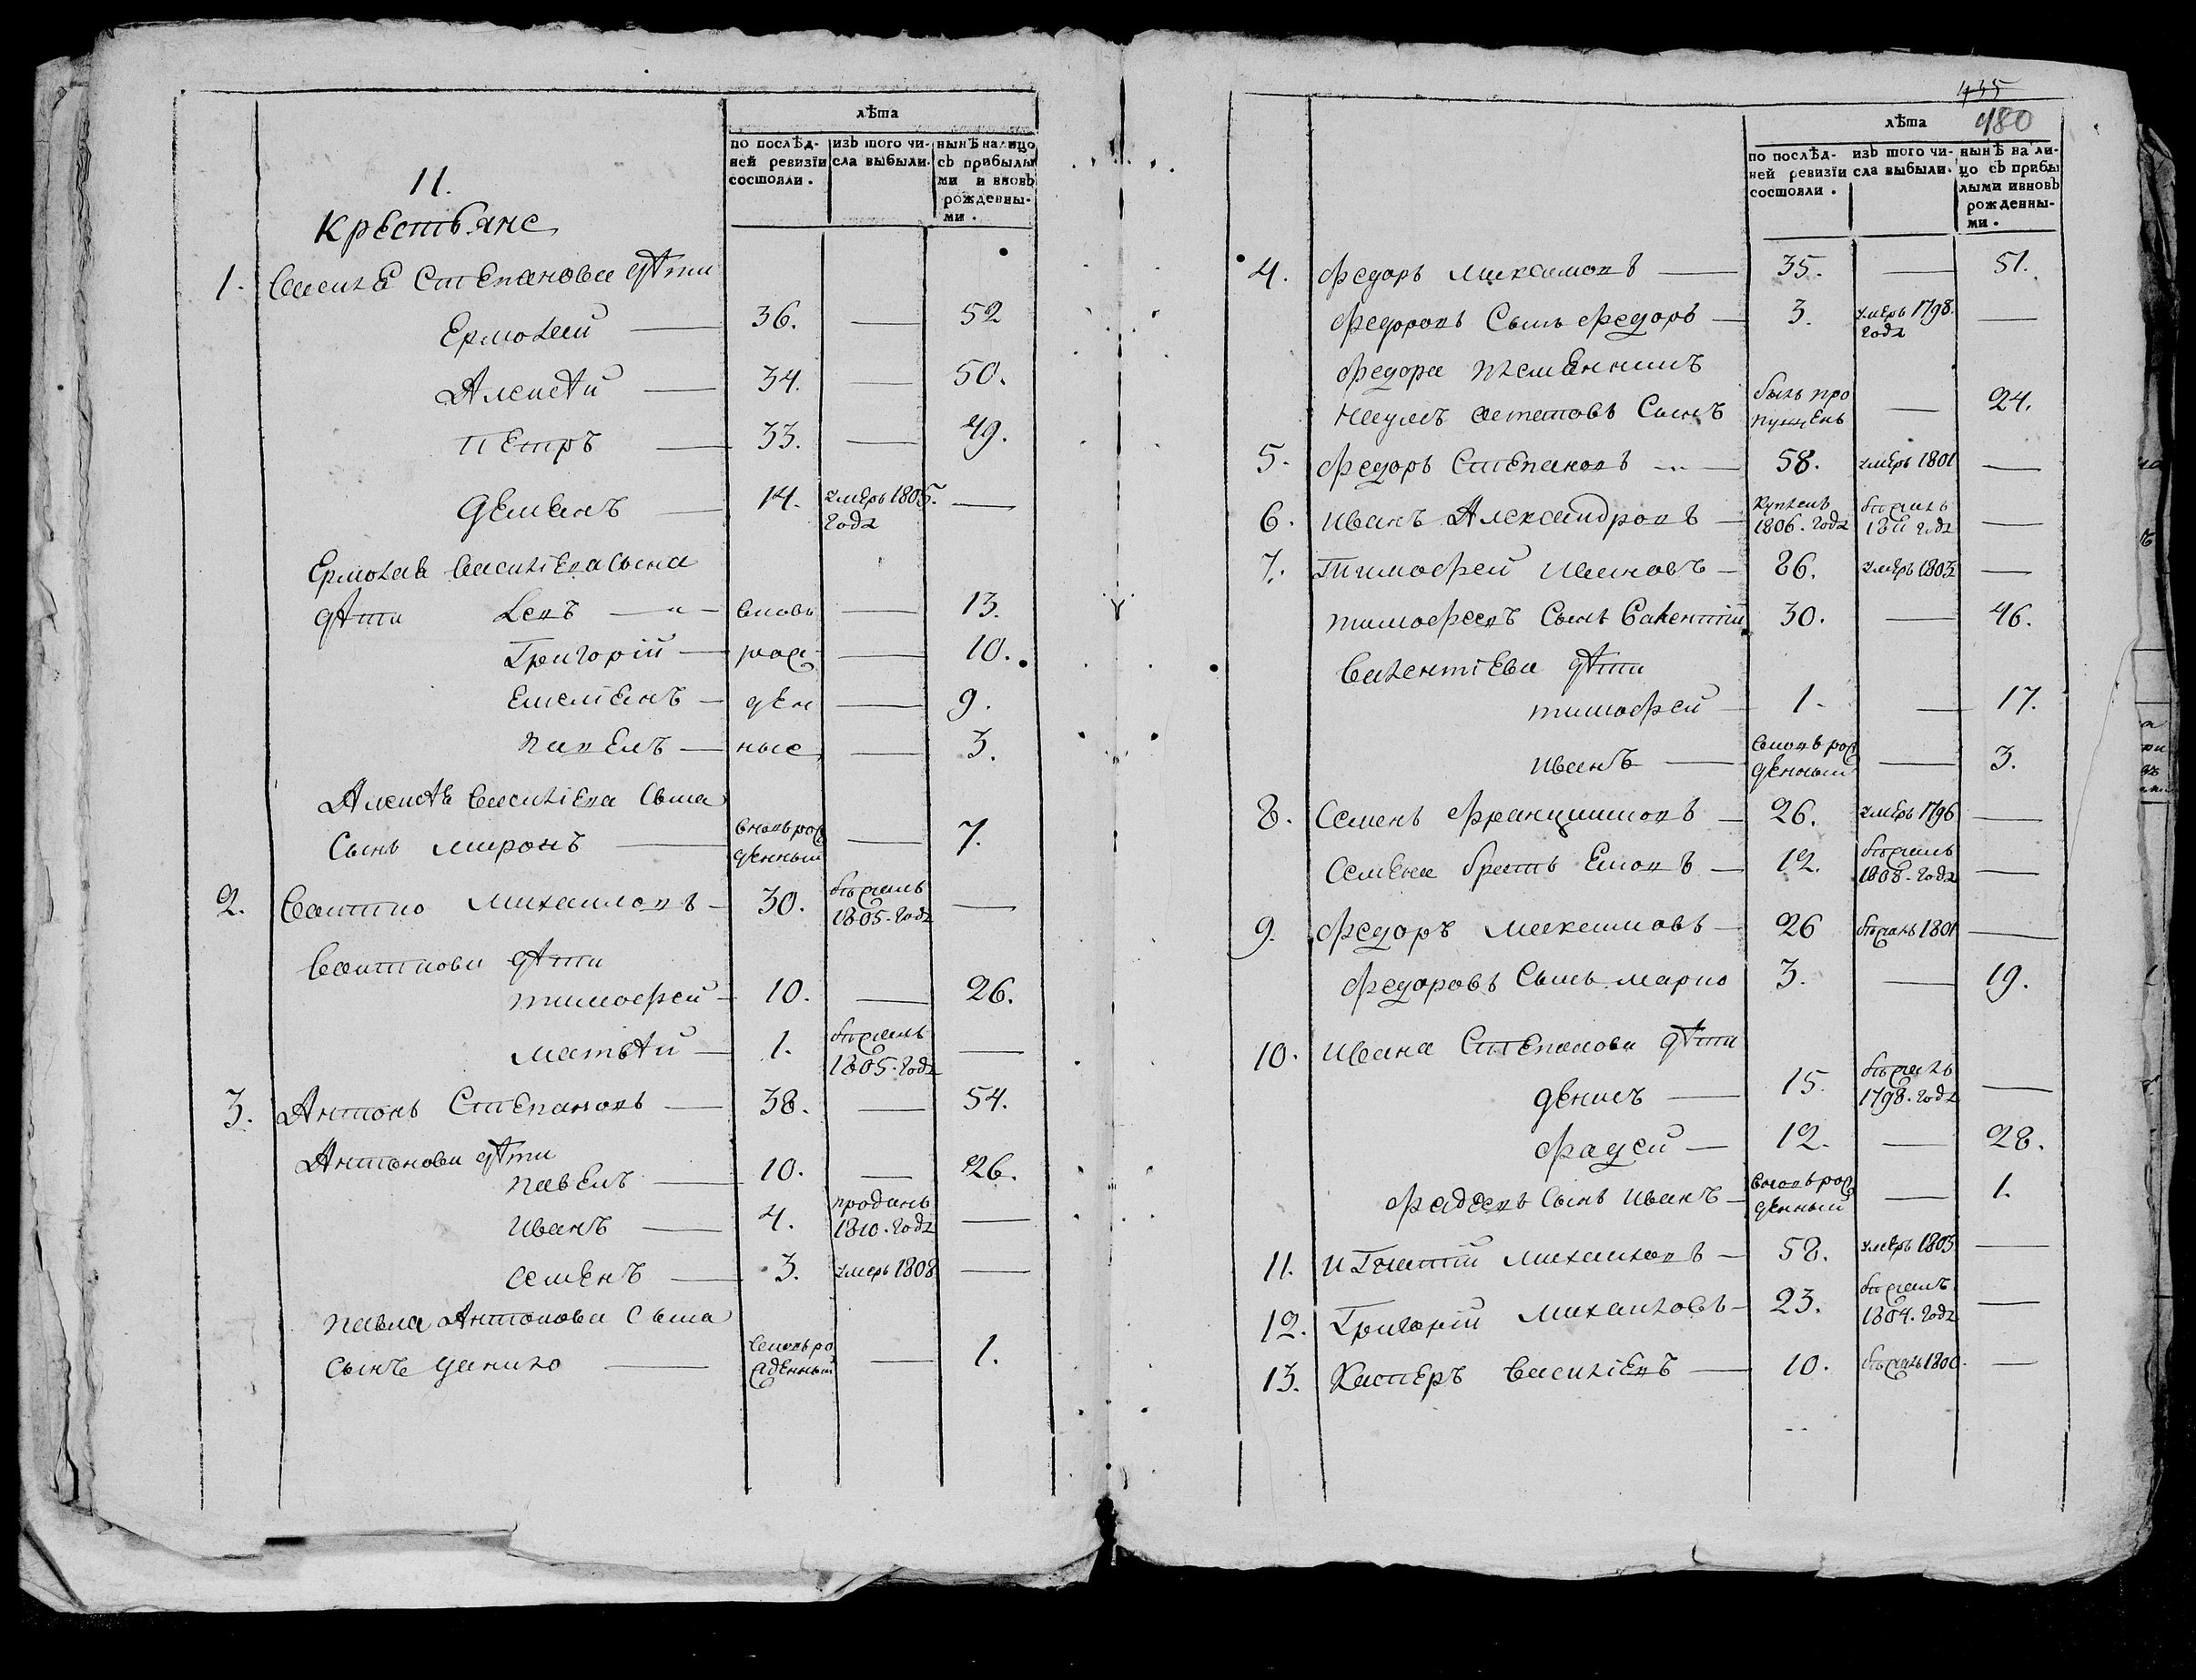 лѣта
по послѣд- изъ того чи- нынѣ налицо
ней ревизіи сла выбыли. съ прибылы
состояли. ми и вновь
рожденны-
ми.
11.
Крестьяне
1. Василя Степанова дѣти
Ермолай — 36. — 52
Алексѣй — 34. — 50.
Петръ — 33. — 49.
Демьянъ — 14. умеръ 1805. —
года
Ермолая Василіева сына
дѣти Левъ — вновь — 13.
Григорій — рож — 10.
Емельянъ — ден — 9.
Павелъ — ные — 3.
Алексѣя Василіева сына
сынъ Миронъ — вновь рож
денный — 7.
2. Михаиловъ — 30. бѣжалъ
1805. года —
дѣти
Тимофей — 10. — 26.
Матвѣй — 1. бѣжалъ
1805. года —
3. Антонъ Степановъ — 38. — 54.
Антонова дѣти
Павелъ — 10. — 26.
Иванъ — 4. проданъ
1810. года —
Семенъ — 3. умеръ 1808 —
Павла Антонова сына
сынъ Данило — вновь ро
жденный — 1.
480
лѣта
по послѣд- изъ того чи- нынѣ на ли-
ней ревизіи сла выбыли. цо съ прибы
состояли. лыми ивновь
рожденны-
ми.
4. Федоръ Максимовъ — 35. — 51.
Федоровъ сынъ Федоръ — 3. умеръ 1798.
года —
Федора племянникъ
Наумъ сынъ былъ про
пущенъ — 24.
5. Федоръ Степановъ — 58. умеръ 1801 —
6. Иванъ Александровъ — купленъ бѣжалъ
1806. года 1811 года —
7. Тимофей Ивановъ — 86. умеръ 1803 —
Тимофеевъ сынъ Валентій 30. — 46.
Валентіева дѣти
Тимофей — 1. — 17.
Иванъ — вновь рож
денный — 3.
8. Семенъ Францишковъ — 26. умеръ 1796 —
Семена братъ — 12. бѣжалъ
1808. года —
9. Федоръ Максимовъ — 26 бѣжалъ 1801 —
Федоровъ сынъ Марко 3. — 19.
10. Ивана Степанова дѣти
Денисъ — 15. бѣжалъ
1798. года —
Фадей — 12. — 28.
Фадеевъ сынъ Иванъ — вновь рож
денный — 1.
11. Игнатій Михаиловъ — 58. умеръ 1803 —
12. Григорій Михаиловъ — 23. бѣжалъ
1804. года —
13. Касперъ Василіевъ — 10. бѣжалъ 1800. —